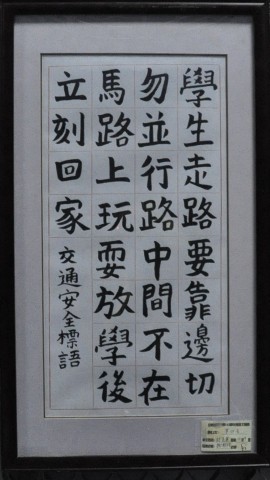 學生走路要靠邊切
勿並行路中間不在
馬路上玩耍放學後
立刻回家
交通安全標語